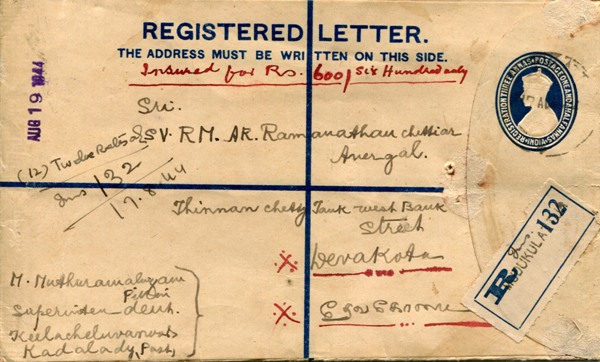 REGISTERED LETTER.
THE ADDRESS MUST BE WRITTEN ON THIS SIDE.
Insured for Rs. 600/ Six Hundred only
AUG 19 1944
REGISTRATION THREE ANNAS POSTAGE ONE AND A HALF ANNAS
INDIA
Sri.
S V. RM. AR. Ramanathan Chettiar
Anergal.
(12) Twelve
Ins 132
17.8.44
Thinnan chetty Tank west Bank
Street
Devakota
தேவகோட்டை
R 132
M. Muthuramalingam
Pillai
Keelacheluvanoor
Kadalady Post,